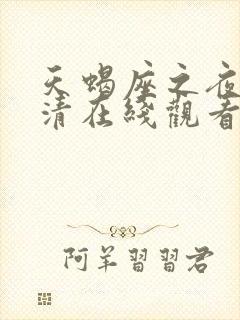 天蝎座之夜
清在线观看
阿羊習習君